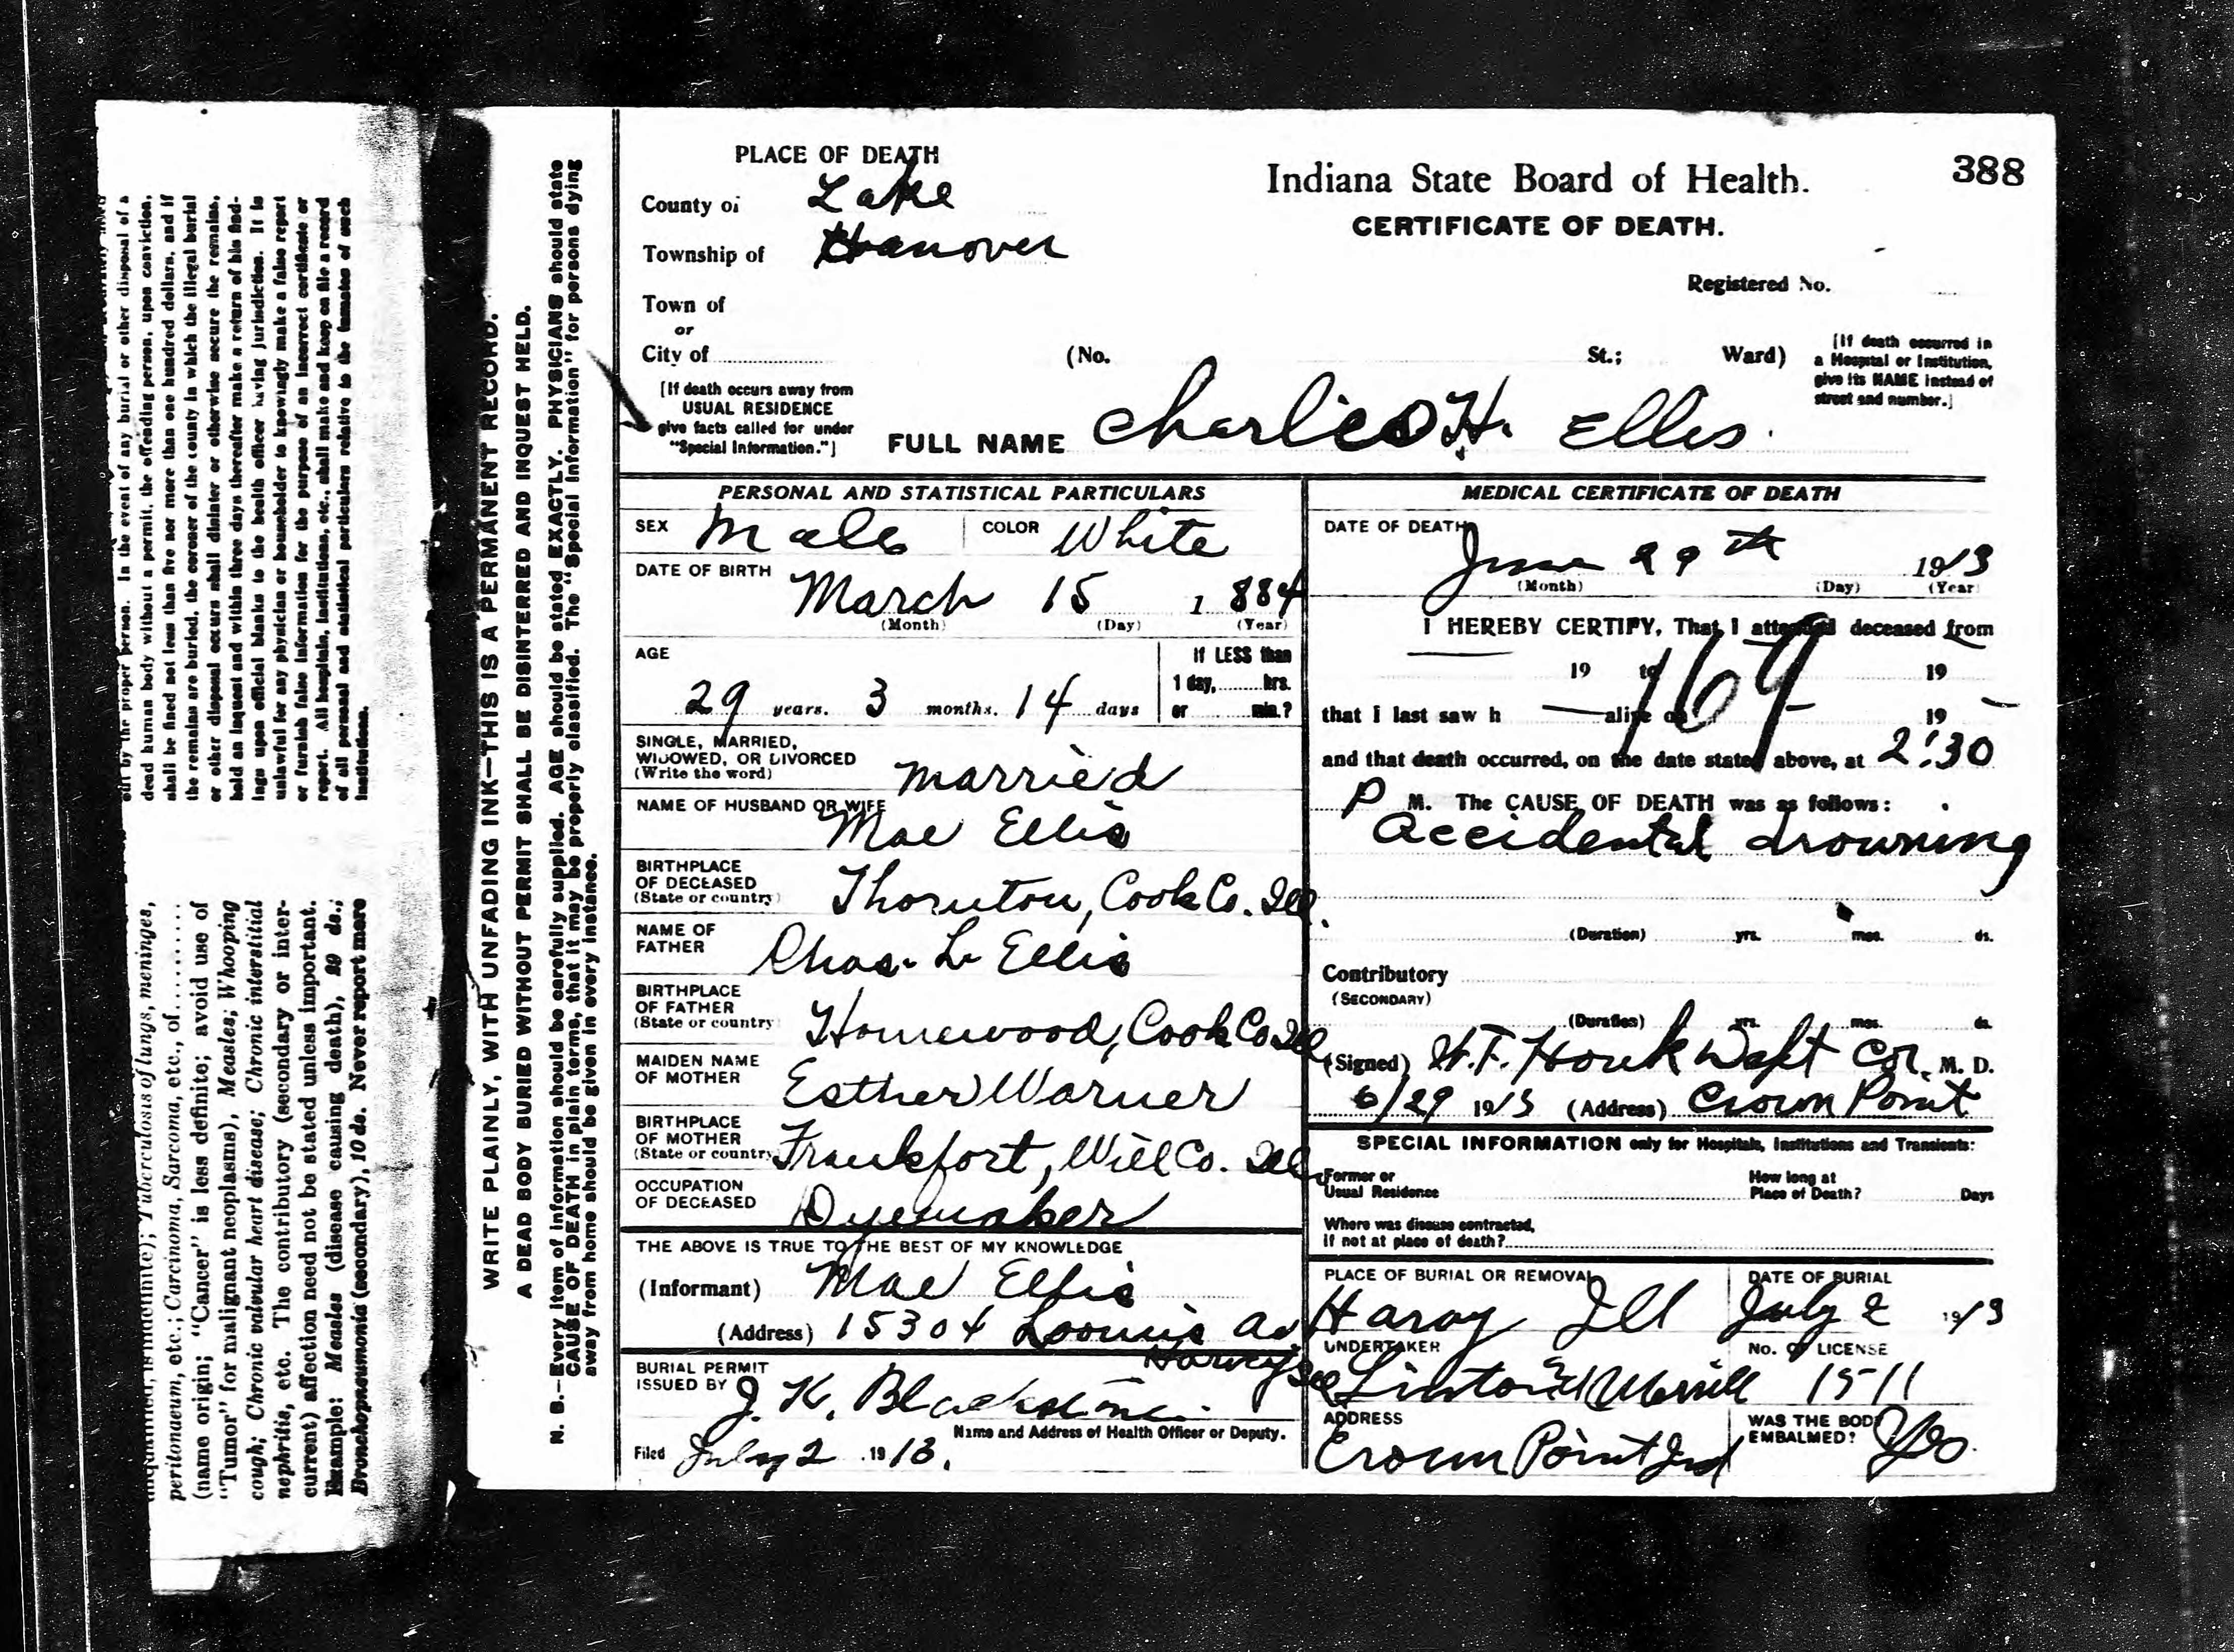 388
Indiana State Board of Health.
CERTIFICATE OF DEATH.
PLACE OF DEATH
County of Lake
Township of Hanover
Town of
or
City of
Registered No.
(No. St.; Ward)
[If death occurred in
a Hospital or Institution,
give its NAME instead of
street and number.]
[If death occurs away from
USUAL RESIDENCE
give facts called for under
"Special Information."]
FULL NAME Charles H. Ellis.
PERSONAL AND STATISTICAL PARTICULARS
SEX Male COLOR White
DATE OF BIRTH
March 15 1884
(Month) (Day) (Year)
AGE
29 years. 3 months. 14 days
If LESS than
1 day, hrs.
or min.?
SINGLE, MARRIED,
WIDOWED, OR DIVORCED
(Write the word) married
NAME OF HUSBAND OR WIFE
Mae Ellis
BIRTHPLACE
OF DECEASED
(State or country) Thornton, Cook Co. Ill.
NAME OF
FATHER Chas. L Ellis
BIRTHPLACE
OF FATHER
(State or country) Homewood, Cook Co Ill
MAIDEN NAME
OF MOTHER Esther Warner
BIRTHPLACE
OF MOTHER
(State or country) Frankfort, Will Co. Ill
OCCUPATION
OF DECEASED Dyemaker
THE ABOVE IS TRUE TO THE BEST OF MY KNOWLEDGE
(Informant) Mae Ellis
(Address) 15304 Loomis av
Harvey Ill
BURIAL PERMIT
ISSUED BY J. K. Blackstone
Name and Address of Health Officer or Deputy.
Filed July 2 1913.
MEDICAL CERTIFICATE OF DEATH
DATE OF DEATH
June 29th 1913
(Month) (Day) (Year)
I HEREBY CERTIFY, That I attended deceased from
19 to 19
169
that I last saw h alive on 19
and that death occurred, on the date stated above, at 2:30
P M. The CAUSE OF DEATH was as follows:
Accidental drowning
(Duration) yrs. mos. ds.
Contributory
(SECONDARY)
(Duration) yrs. mos. ds.
(Signed) W. F. Houk Cor. M. D.
6/29 1913 (Address) Crown Point
SPECIAL INFORMATION only for Hospitals, Institutions and Transients:
Former or
Usual Residence
How long at
Place of Death? Days
Where was disease contracted,
if not at place of death?
PLACE OF BURIAL OR REMOVAL
Harvy Ill
DATE OF BURIAL
July 2 1913
UNDERTAKER
Linton Ed Merrill
No. OF LICENSE
1511
ADDRESS
Crown Point Ind
WAS THE BODY
EMBALMED? Yes
WRITE PLAINLY, WITH UNFADING INK—THIS IS A PERMANENT RECORD.
A DEAD BODY BURIED WITHOUT PERMIT SHALL BE DISINTERRED AND INQUEST HELD.
N. B.—Every item of information should be carefully supplied. AGE should be stated EXACTLY. PHYSICIANS should state
CAUSE OF DEATH in plain terms, that it may be properly classified. The "Special Information" for persons dying
away from home should be given in every instance.
out by the proper person. In the event of any burial or other disposal of a
dead human body without a permit, the offending person, upon conviction,
shall be fined not less than five nor more than one hundred dollars, and if
the remains are buried, the coroner of the county in which the illegal burial
or other disposal occurs shall disinter or otherwise secure the remains,
hold an inquest and within three days thereafter make a return of his find-
ings upon official blanks to the health officer having jurisdiction. It is
unlawful for any physician or householder to knowingly make a false report
or furnish false information for the purpose of an incorrect certificate or
report. All hospitals, institutions, etc., shall make and keep on file a record
of all personal and statistical particulars relative to the inmates of each
institution.
(unqualified, is indefinite); Tuberculosis of lungs, meninges,
peritonaeum, etc.; Carcinoma, Sarcoma, etc., of..........
(name origin; "Cancer" is less definite; avoid use of
"Tumor" for malignant neoplasms), Measles; Whooping
cough; Chronic valvular heart disease; Chronic interstitial
nephritis, etc. The contributory (secondary or inter-
current) affection need not be stated unless important.
Example: Measles (disease causing death), 29 ds.;
Bronchopneumonia (secondary), 10 ds. Never report mere